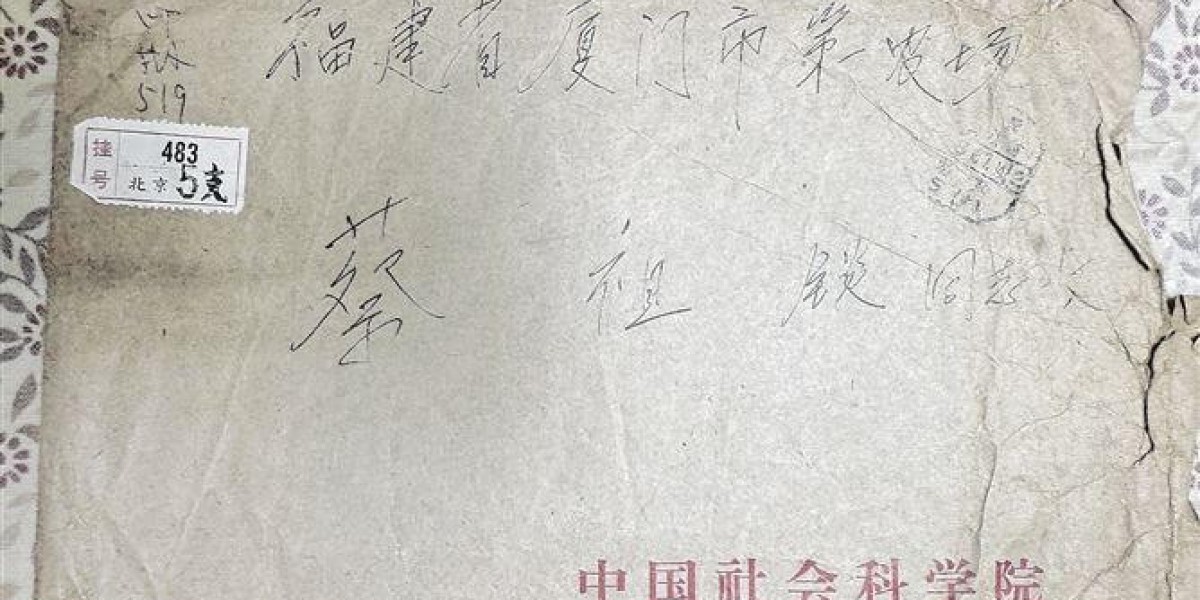 印
519
福建省厦门市第一农场
挂号
483
北京 5支
蔡祖
同志收
中国社会科学院